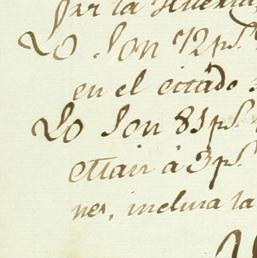 por la
Lo son 72 p.s
en el citado
Lo son 81 p.s
á 3 p.s
nes, inclusa la